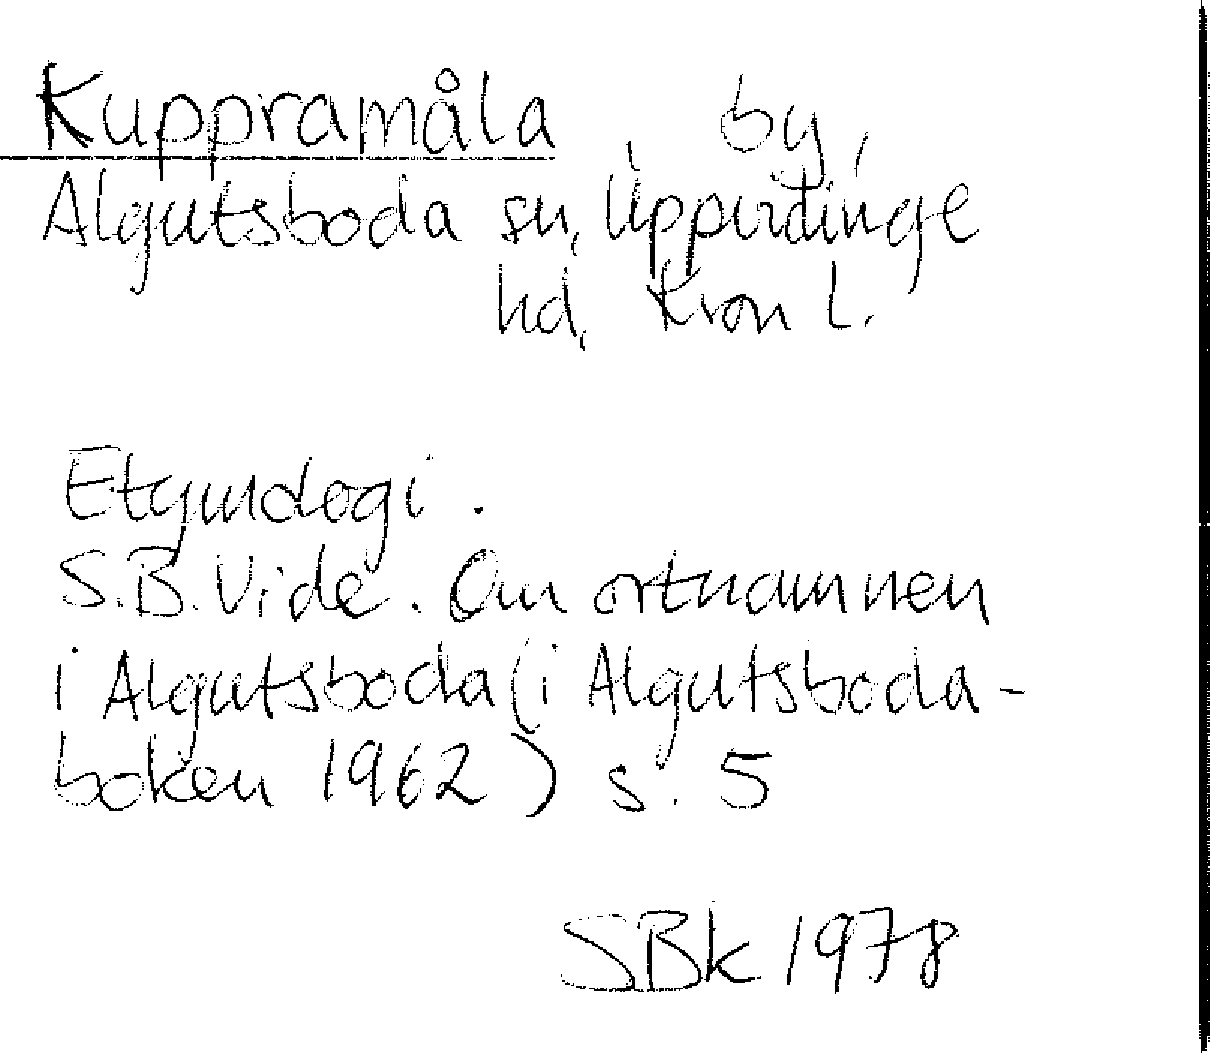 Kuppramåla, by,
Algutsboda sn, Uppvidinge
hd, Kron L.
Etymologi.
S.B. Vide. Om ortnamnen
i Algutsboda (i Algutsboda-
boken 1962) s. 5
SBk 1978